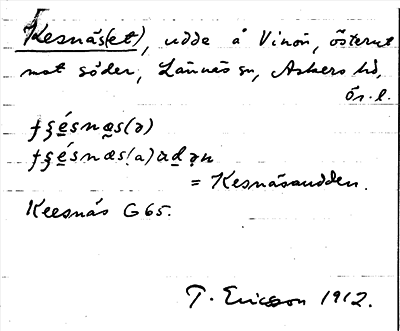 Kesnäs(et), udde å Vinön, österut
mot söder, Lännäs sn, Askers hd,
ör. l.
= Kesnäsaudden.
Keesnäs G65.
T. Ericsson 1912.